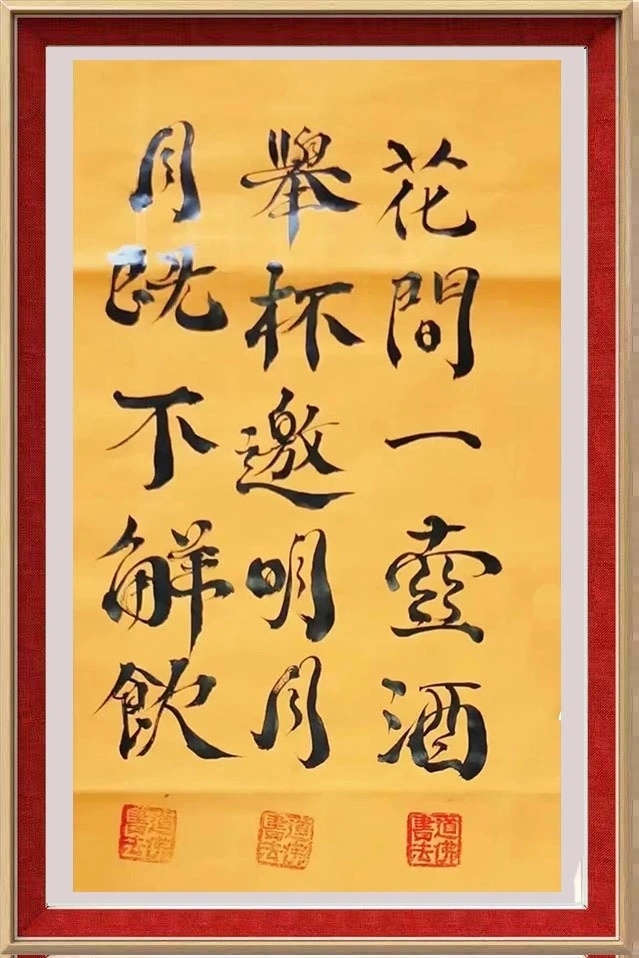 花間一壺酒
舉杯邀明月
月既不解飲
道佛書法
道佛書法
道佛書法